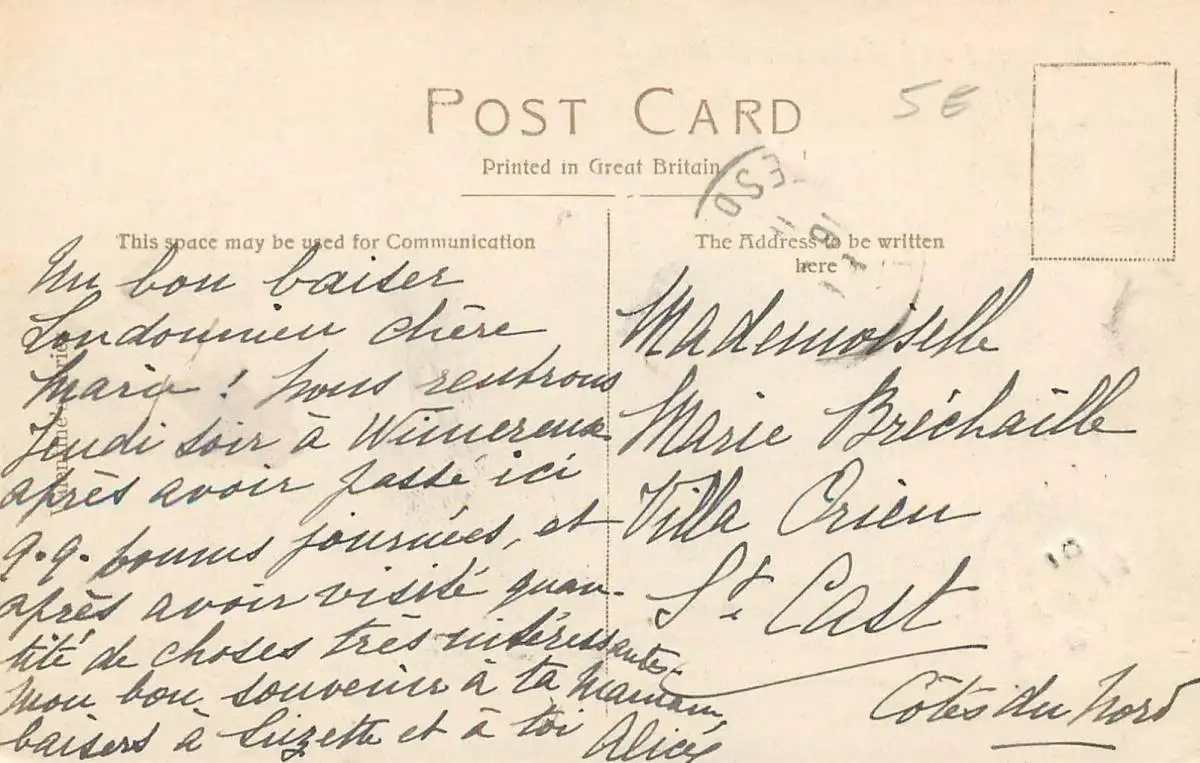 POST CARD
5 €
Printed in Great Britain
This space may be used for Communication
The Address to be written
here
Un bon baiser
Londonnien chère
Marie ! Nous rentrons
Jeudi soir à Wimereux
après avoir passé ici
q.q. bonnes journées, et
après avoir visité quan-
tité de choses très intéressantes.
Mon bon souvenir à ta Maman,
baisers à Suzette et à toi
Alice
Mademoiselle
Marie Bréchaille
Villa Orien
St. Cast
Côtes du Nord